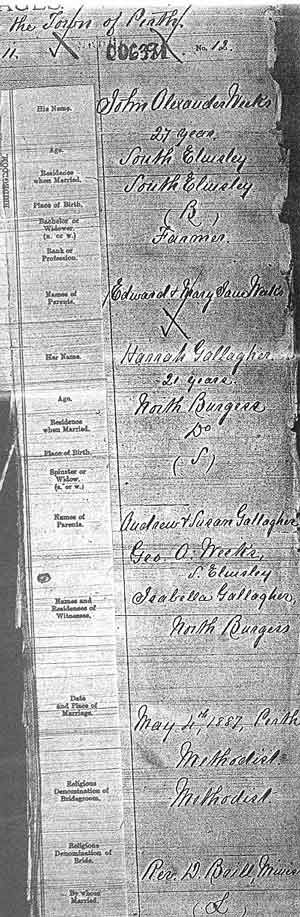 AGES.
the Town of Perth.
11.
006331
No. 12.
BRIDEGROOM.
His Name.
John Alexander Weeks
Age.
27 years
Residence when Married.
South Elmsley
Place of Birth.
South Elmsley
Bachelor or Widower. (B. or W.)
(B)
Rank or Profession.
Farmer
Names of Parents.
Edward & Mary Jane Weeks
Her Name.
Hannah Gallagher
Age.
21 years.
Residence when Married.
North Burgess
Place of Birth.
Do
Spinster or Widow. (S. or W.)
(S)
Names of Parents.
Andrew & Susan Gallagher
Names and Residences of Witnesses.
Geo. O. Weeks,
S. Elmsley
Isabella Gallagher,
North Burgess
Date and Place of Marriage.
May 4th, 1887, Perth
Religious Denomination of Bridegroom.
Methodist
Religious Denomination of Bride.
Methodist.
By whom Married.
Rev. D.
(L)